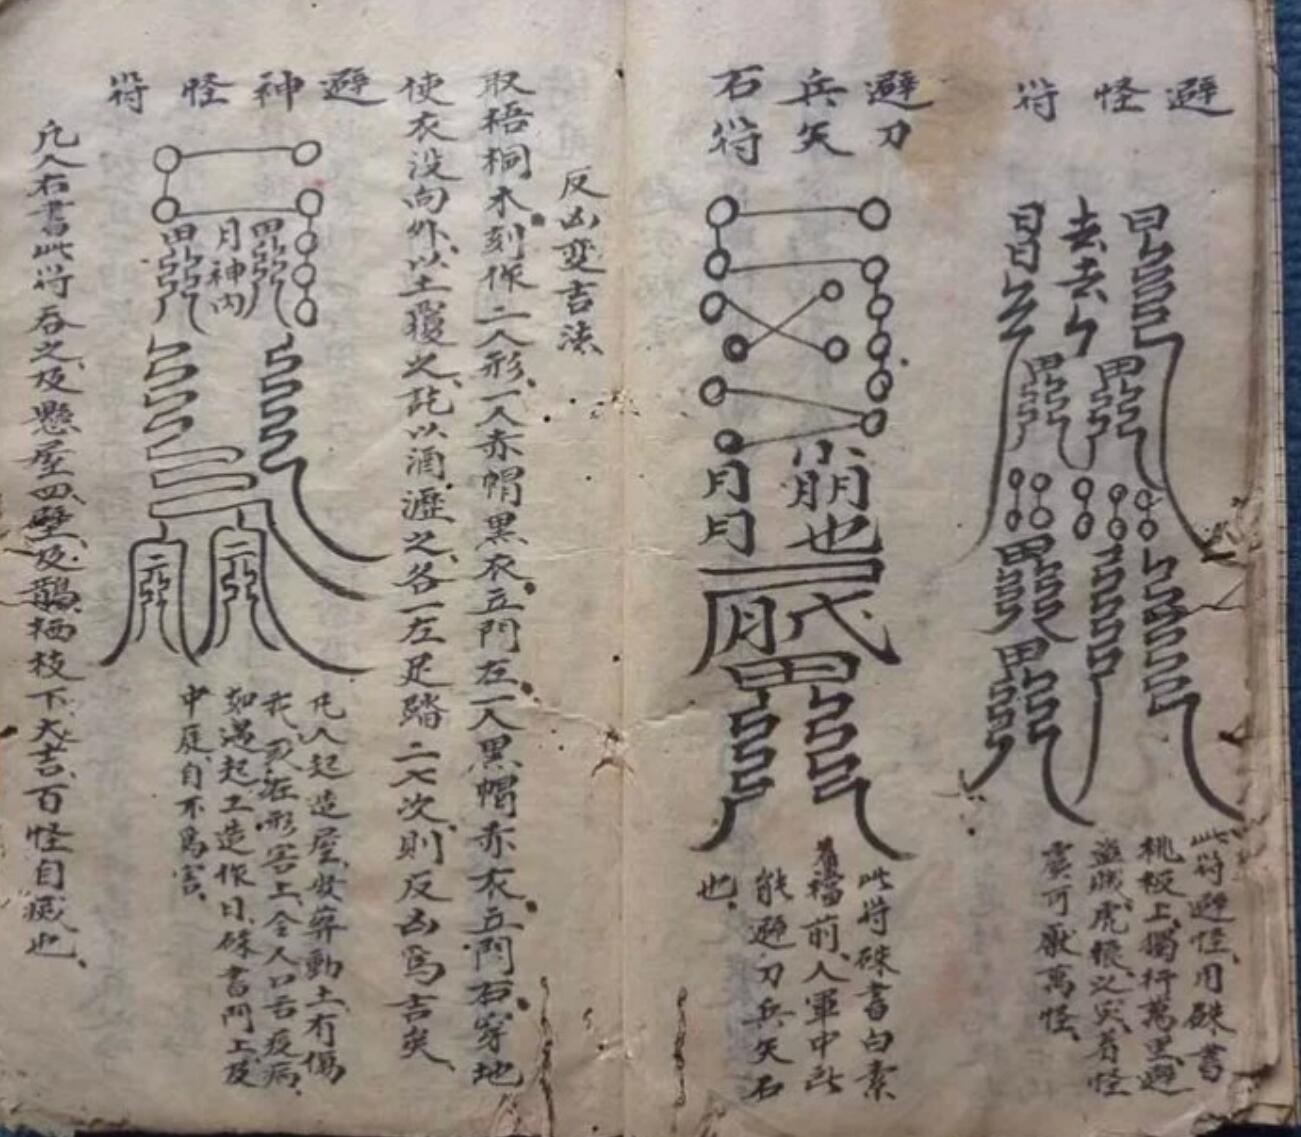 避怪符
此符避怪、用硃書
桃板上、獨行萬里、避
盜賊虎狼之災、看怪
可厭萬怪、
避刀
兵矢
石符
此符硃書白素
前、入軍中此
能避刀兵矢石
也、
反凶变吉法
取梧桐木、刻作二人形、一人赤帽黑衣、立門左、一人黑帽赤衣、立門右、穿地
使衣没向外、以土覆之、訖以酒瀝之、各一左足踏二七次、則反凶為吉矣、
避神怪符
凡人起造屋、安葬動土、有傷
在形害上、令人口舌疫病、
如遇起工造作日、硃書門上、及
中庭、自不為害、
凡人右書此符吞之、及懸屋四壁、及鵲栖枝下、大吉、百怪自滅也、